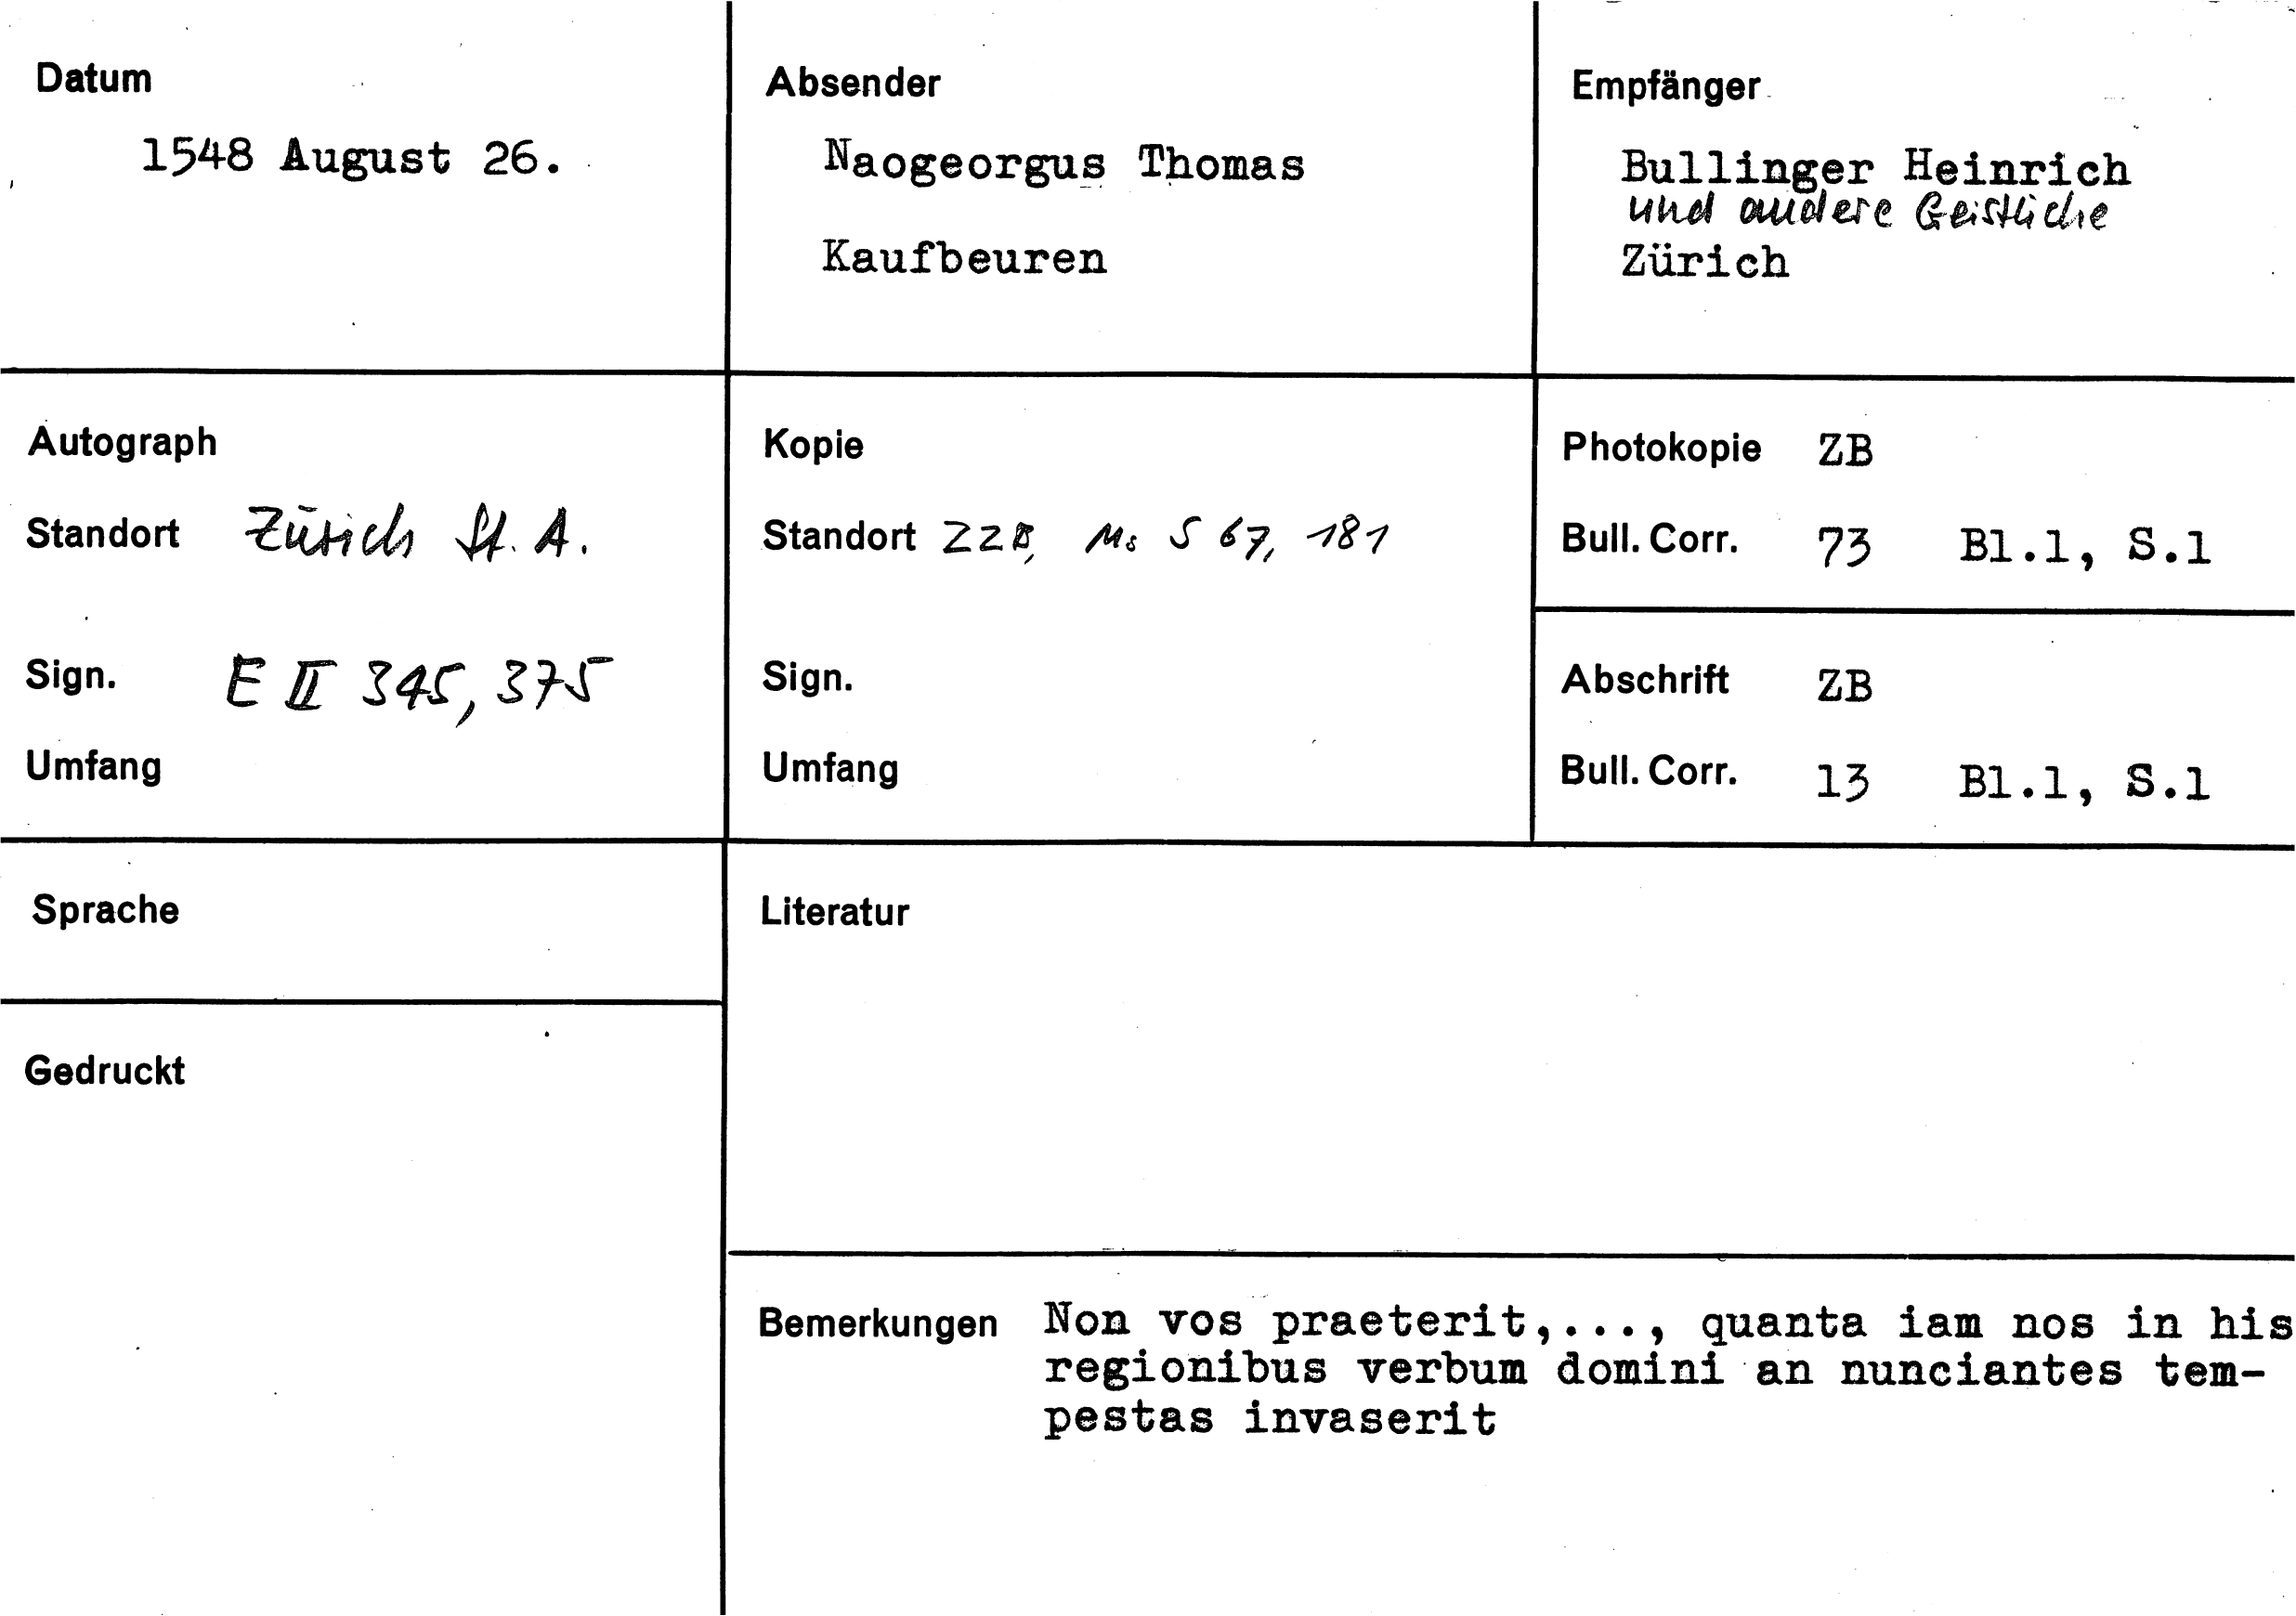 Datum
1548 August 26.
Absender
Naogeorgus Thomas
Kaufbeuren
Empfänger
Bullinger Heinrich
und andere Geistliche
Zürich
Autograph
Standort Zürich St. A.
Sign. E II 345, 375
Umfang
Kopie
Standort ZZB, Ms S 67, 181
Sign.
Umfang
Photokopie ZB
Bull. Corr. 73 Bl.1, S.1
Abschrift ZB
Bull. Corr. 13 Bl.1, S.1
Sprache
Gedruckt
Literatur
Bemerkungen Non vos praeterit,..., quanta iam nos in his
regionibus verbum domini an nunciantes tem-
pestas invaserit